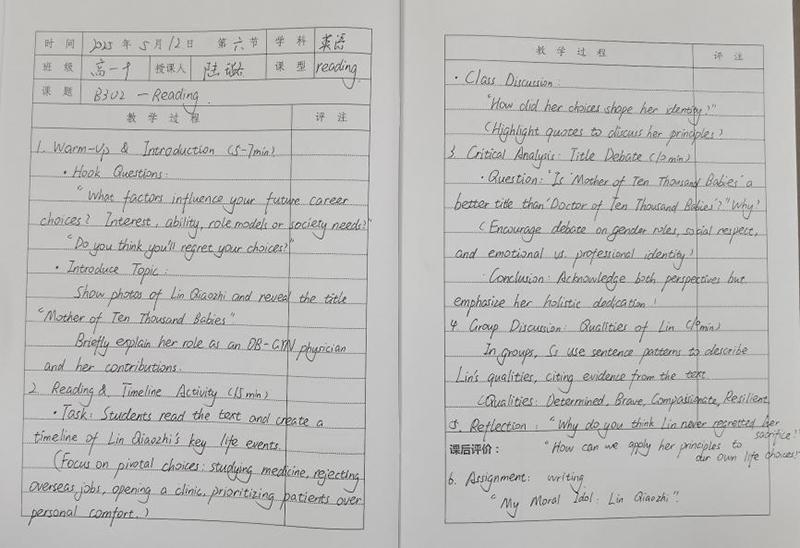 时间 2025年5月12日 第六节 学科 英语
班级 高一 授课人 陆 课型 reading
课题 B3U2 — Reading
教学过程 评注
1. Warm-Up & Introduction (5-7min)
• Hook Questions:
"What factors influence your future career
choices? Interest, ability, role models or society needs?"
"Do you think you'll regret your choices?"
• Introduce Topic:
Show photos of Lin Qiaozhi and reveal the title
"Mother of Ten Thousand Babies"
Briefly explain her role as an OB-GYN physician
and her contributions.
2. Reading & Timeline Activity (15min)
• Task: Students read the text and create a
timeline of Lin Qiaozhi's key life events.
(Focus on pivotal choices: studying medicine, rejecting
overseas jobs, opening a clinic, prioritizing patients over
personal comfort.)
教学过程 评注
• Class Discussion:
"How did her choices shape her identity?"
(Highlight quotes to discuss her principles)
3. Critical Analysis: Title Debate (10min)
• Question: "Is 'Mother of Ten Thousand Babies' a
better title than 'Doctor of Ten Thousand Babies'?" "Why?
(Encourage debate on gender roles, social respect,
and emotional vs. professional identity)
Conclusion: Acknowledge both perspectives but
emphasize her holistic dedication!
4. Group Discussion: Qualities of Lin (10min)
In groups, Ss use sentence patterns to describe
Lin's qualities, citing evidence from the text.
(Qualities: Determined, Brave, Compassionate, Resilient
5. Reflection: "Why do you think Lin never regretted her
sacrifice?"
课后评价: "How can we apply her principles to
our own life choices?"
6. Assignment: writing
"My Moral Idol: Lin Qiaozhi".